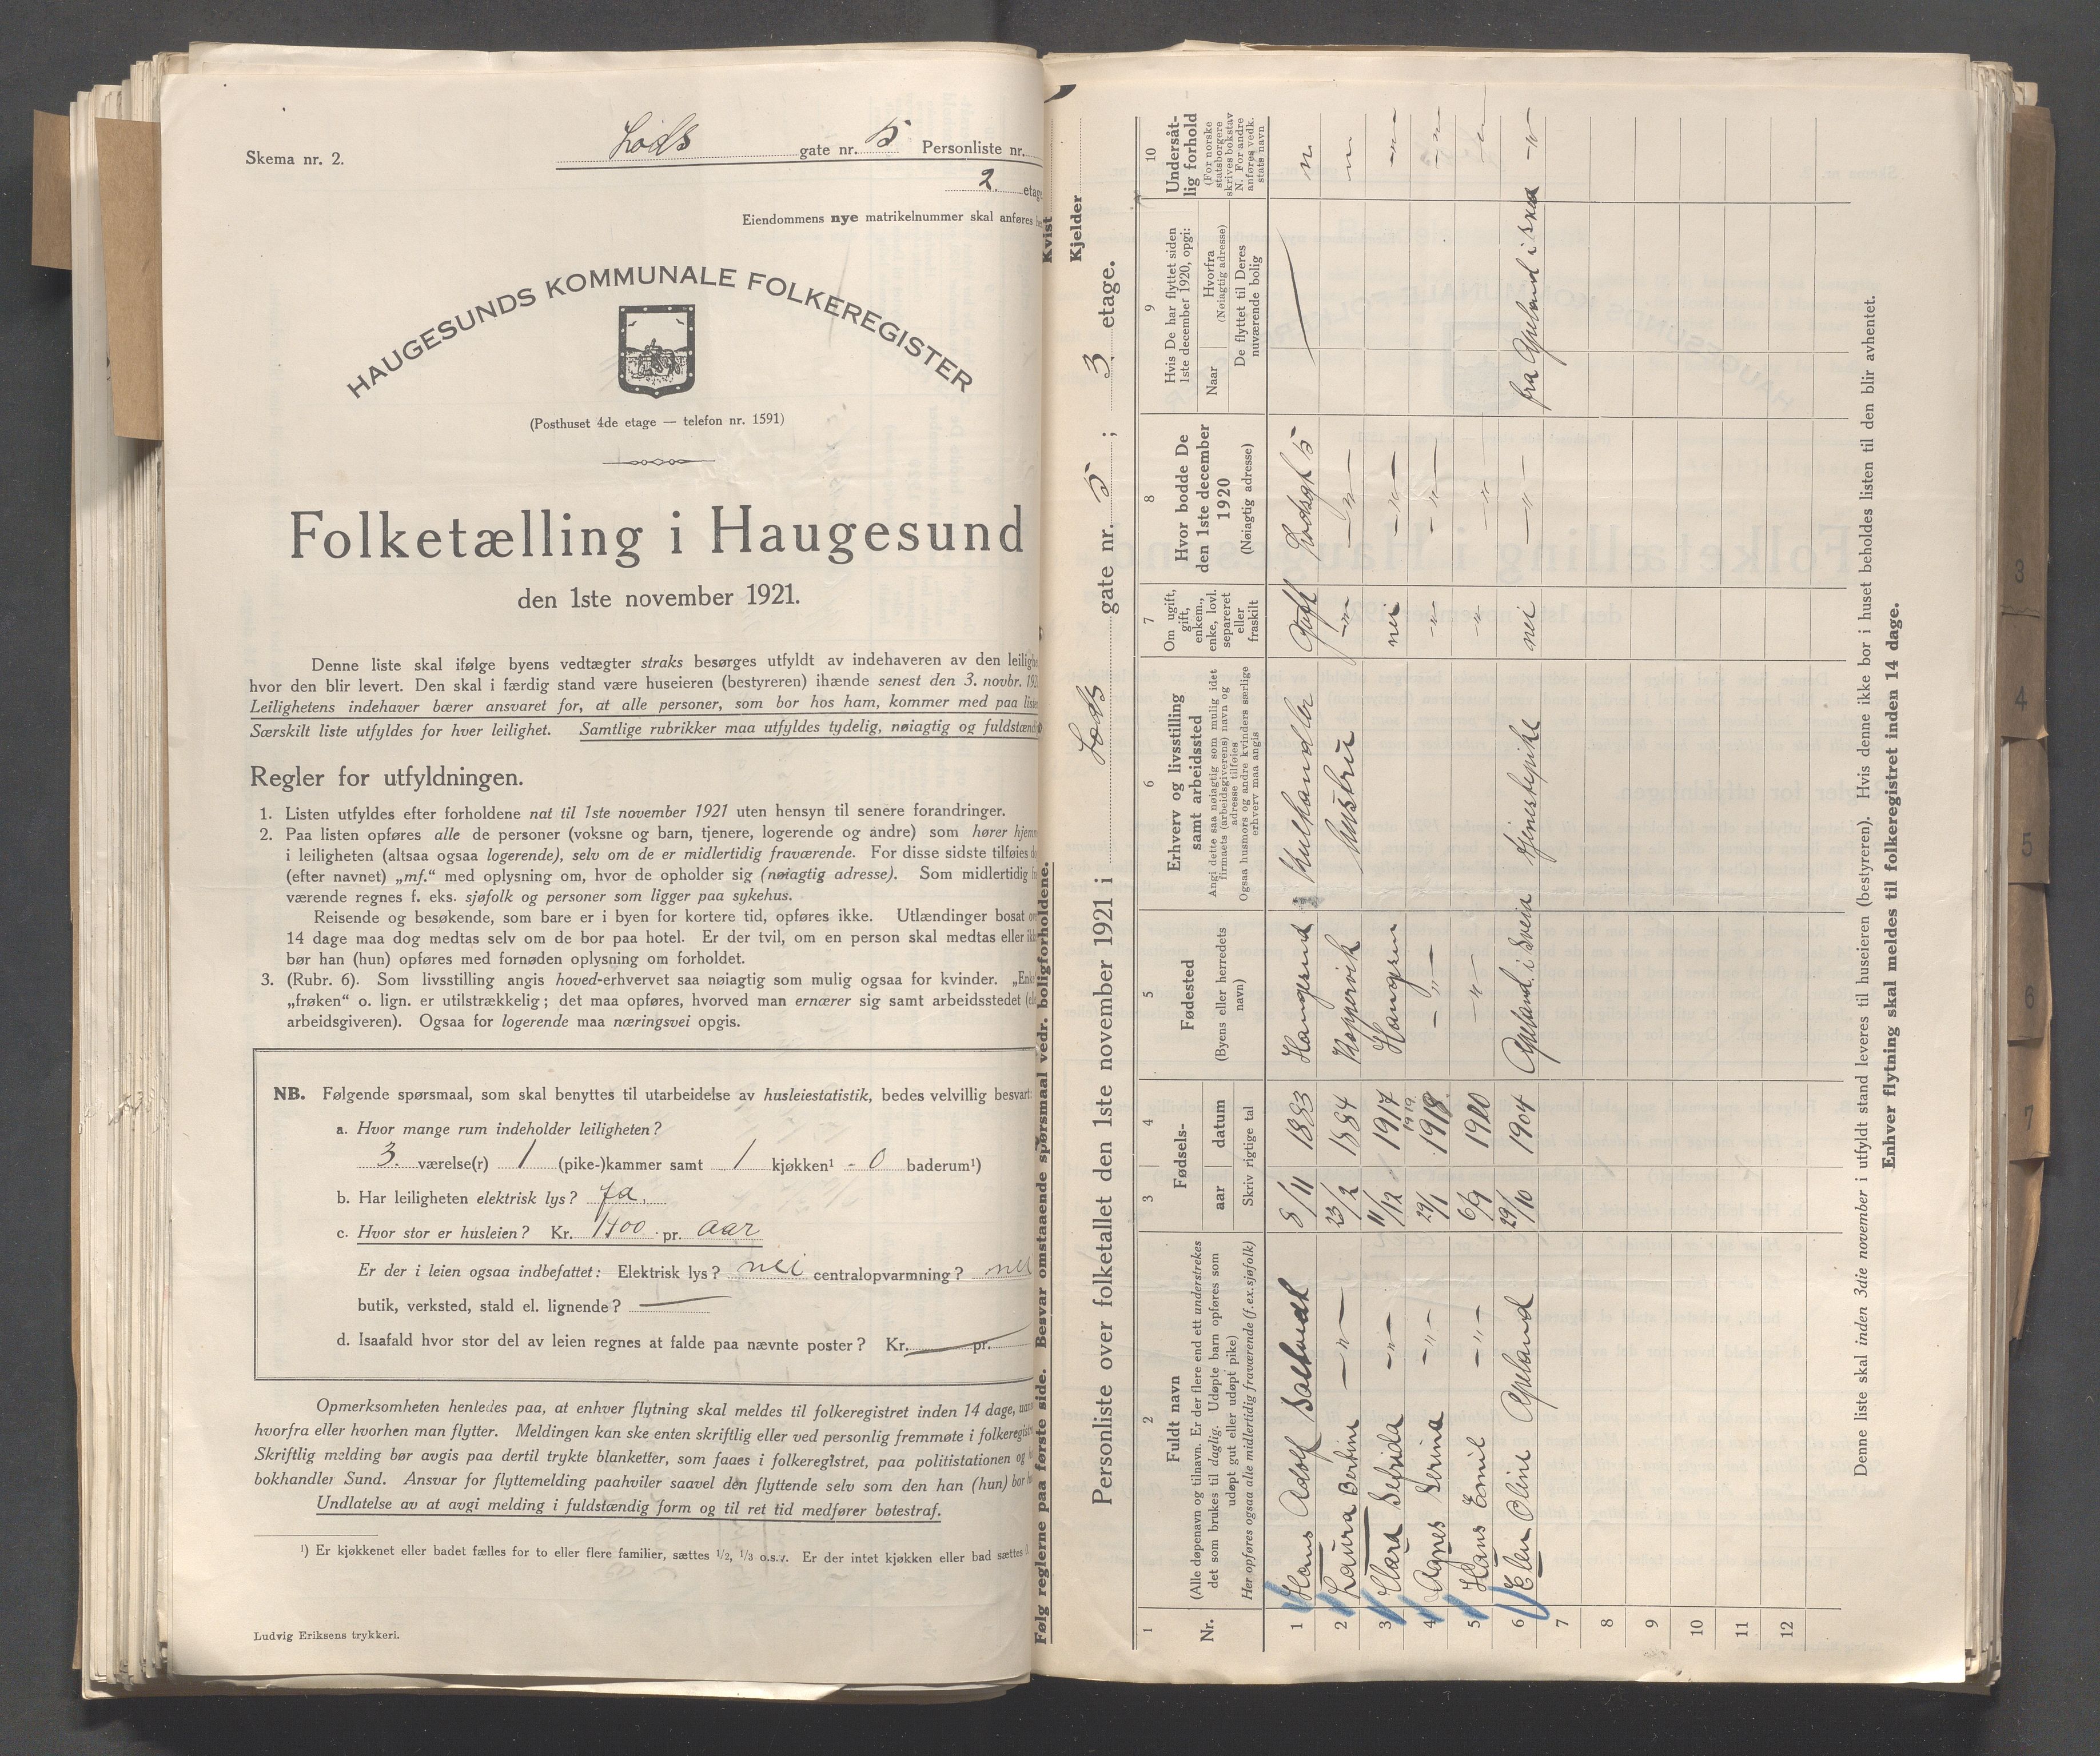 Skema nr. 2.
Lods gate nr. 5 Personliste nr.
2. etage
Eiendommens nye matrikelnummer skal anføres
HAUGESUNDS KOMMUNALE FOLKEREGISTER
(Posthuset 4de etage — telefon nr. 1591)
Folketælling i Haugesund
den 1ste november 1921.
Denne liste skal ifølge byens vedtægter straks besørges utfyldt av indehaveren av den leilighe
hvor den blir levert. Den skal i færdig stand være huseieren (bestyreren) ihænde senest den 3. novbr. 192
Leilighetens indehaver bærer ansvaret for, at alle personer, som bor hos ham, kommer med paa listen
Særskilt liste utfyldes for hver leilighet. Samtlige rubrikker maa utfyldes tydelig, nøiagtig og fuldstændi
Regler for utfyldningen.
1. Listen utfyldes efter forholdene nat til 1ste november 1921 uten hensyn til senere forandringer.
2. Paa listen opføres alle de personer (voksne og barn, tjenere, logerende og andre) som hører hjem
i leiligheten (altsaa ogsaa logerende), selv om de er midlertidig fraværende. For disse sidste tilføies
(efter navnet) „mf.“ med oplysning om, hvor de opholder sig (nøiagtig adresse). Som midlertidig
værende regnes f. eks. sjøfolk og personer som ligger paa sykehus.
Reisende og besøkende, som bare er i byen for kortere tid, opføres ikke. Utlændinger bosat
14 dage maa dog medtas selv om de bor paa hotel. Er der tvil, om en person skal medtas eller
bør han (hun) opføres med fornøden oplysning om forholdet.
3. (Rubr. 6). Som livsstilling angis hoved-erhvervet saa nøiagtig som mulig ogsaa for kvinder. „Enke
„frøken“ o. lign. er utilstrækkelig; det maa opføres, hvorved man ernærer sig samt arbeidsstedet
arbeidsgiveren). Ogsaa for logerende maa næringsvei opgis.
NB. Følgende spørsmaal, som skal benyttes til utarbeidelse av husleiestatistik, bedes velvillig besvart:
a. Hvor mange rum indeholder leiligheten?
3. værelse(r) 1 (pike-)kammer samt 1 kjøkken¹ - 0 baderum¹)
b. Har leiligheten elektrisk lys? ja.
c. Hvor stor er husleien? Kr. 1400 pr. aar
Er der i leien ogsaa indbefattet: Elektrisk lys? nei centralopvarmning? nei
butik, verksted, stald el. lignende? —
d. Isaafald hvor stor del av leien regnes at falde paa nævnte poster? Kr. — pr.
Opmerksomheten henledes paa, at enhver flytning skal meldes til folkeregistret inden 14 dage,
hvorfra eller hvorhen man flytter. Meldingen kan ske enten skriftlig eller ved personlig fremmøte i folkeregist
Skriftlig melding bør avgis paa dertil trykte blanketter, som faaes i folkeregistret, paa politistationen og
bokhandler Sund. Ansvar for flyttemelding paahviler saavel den flyttende selv som den han (hun) bor
Undlatelse av at avgi melding i fuldstændig form og til ret tid medfører bøtestraf.
¹) Er kjøkkenet eller badet fælles for to eller flere familier, sættes 1/2, 1/3 o.s.v. Er der intet kjøkken eller bad sættes 0.
Ludvig Eriksens trykkeri.
Følg reglerne paa første side. Besvar omstaaende spørsmaal vedr. boligforholdene.
Kvist
Kjelder
Personliste over folketallet den 1ste november 1921 i Lods gate nr. 5 ; 3. etage.
1 2 3 4 5 6 7 8 9 10
Nr.
Fuldt navn
(Alle døpenavn og tilnavn. Er der flere end ett understrekes
det som brukes til daglig. Udøpte barn opføres som
udøpt gut eller udøpt pike)
Her opføres ogsaa alle midlertidig fraværende (f.ex.sjøfolk)
Fødsels-
aar datum
Skriv rigtige tal
Fødested
(Byens eller herredets
navn)
Erhverv og livsstilling
samt arbeidssted
Angi dette saa nøiagtig som mulig idet
firmaets (arbeidsgiverens) navn og
adresse tilføies
Ogsaa husmors og andre kvinders særlige
erhverv maa angis
Om ugift,
gift,
enkem.,
enke, lovl.
separeret
eller
fraskilt
Hvor bodde De
den 1ste december
1920
(Nøiagtig adresse)
Hvis De har flyttet siden
1ste december 1920, opgi:
Naar
Hvorfra
(Nøiagtig adresse)
De flyttet til Deres
nuværende bolig
Undersåt-
lig forhold
(For norske
statsborgere
skrives bokstav
N. For andre
anføres vedk.
stats navn
1 Hans Adolf Saltvedt 8/11 1883 Haugesund Kulhandler Gift Lodsgt 5 — n
2 Laura Bertine —"— 23/2 1884 Kopperviik hustru —"— —"— n
3 Clara Sefrida —"— 11/12 1917 Haugesun nei —"— —"—
4 Agnes Serina —"— 29/1 1919 1918. —"— —"— —"— —"—
5 Hans Emil —"— 6/9 1920 —"— —"— —"— —"—
6 Elen Oline Apeland 29/10 1904 Apeland i Sveia tjenestepike nei —"— fra Apeland i —"—
7
8
9
10
11
12
Denne liste skal inden 3die november i utfyldt stand leveres til huseieren (bestyreren). Hvis denne ikke bor i huset beholdes listen til den blir avhentet.
Enhver flytning skal meldes til folkeregistret inden 14 dage.
3
4
5
6
7